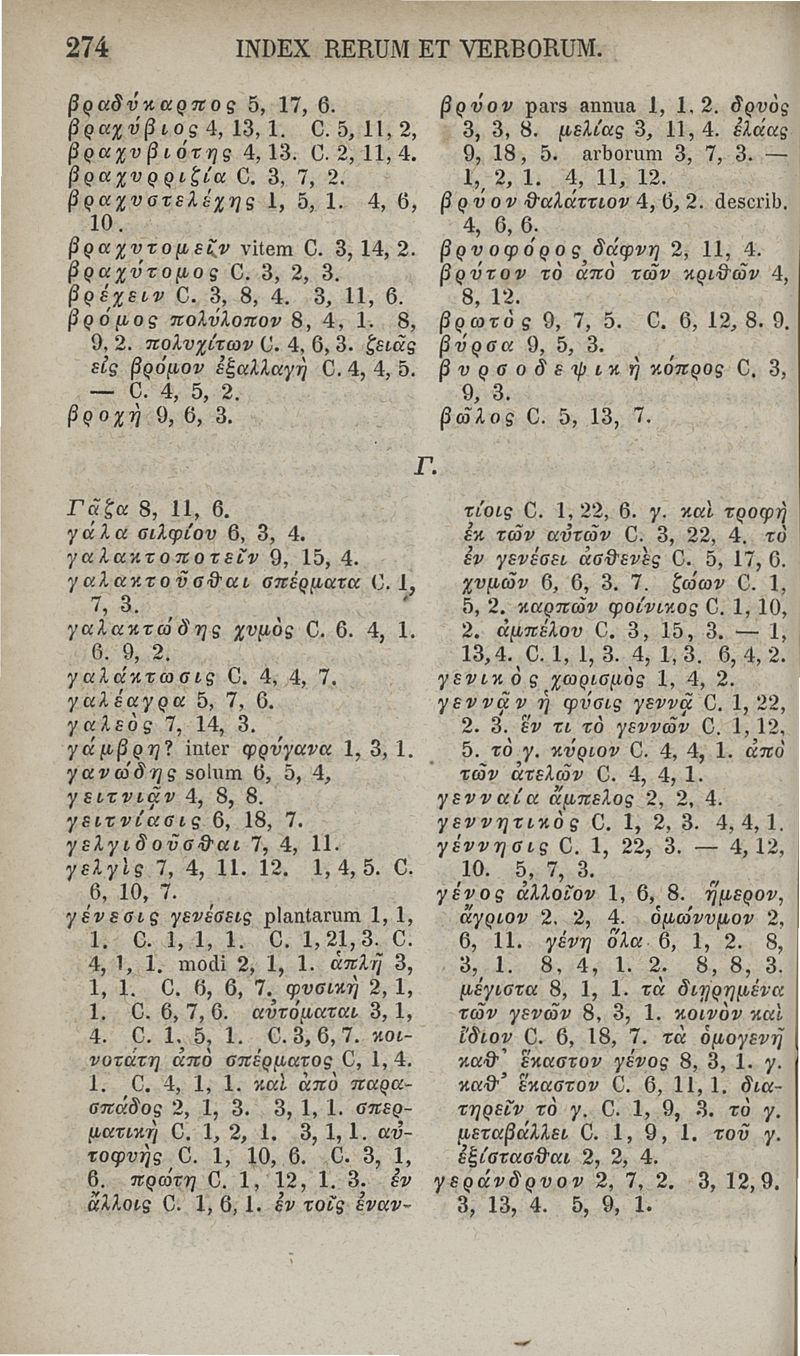 274 INDEX RERUM ET VERBORUM.
βραδύκαρπος 5, 17, 6.
βραχύβιος 4, 13, 1. C. 5, 11, 2,
βραχυβιότης 4, 13. C. 2, 11, 4.
βραχυρριζία C. 3, 7, 2.
βραχυστελέχης 1, 5, 1. 4, 6,
10.
βραχυτομεῖν vitem C. 3, 14, 2.
βραχύτομος C. 3, 2, 3.
βρέχειν C. 3, 8, 4. 3, 11, 6.
βρόμος πολύλοπον 8, 4, 1. 8,
9, 2. πολυχίτων C. 4, 6, 3. ζειᾶς
εἰς βρόμον ἐξαλλαγὴ C. 4, 4, 5.
— C. 4, 5, 2.
βροχὴ 9, 6, 3.
βρύον pars annua 1, 1. 2. δρυὸς
3, 3, 8. μελίας 3, 11, 4. ἐλάας
9, 18, 5. arborum 3, 7, 3. —
1, 2, 1. 4, 11, 12.
βρύον θαλάττιον 4, 6, 2. describ.
4, 6, 6.
βρυοφόρος δάφνη 2, 11, 4.
βρύτον τὸ ἀπὸ τῶν κριθῶν 4,
8, 12.
βρωτὸς 9, 7, 5. C. 6, 12, 8. 9.
βύρσα 9, 5, 3.
βυρσοδεψικὴ κόπρος C. 3,
9, 3.
βῶλος C. 5, 13, 7.
Γ.
Γᾶζα 8, 11, 6.
γάλα σιλφίου 6, 3, 4.
γαλακτοποτεῖν 9, 15, 4.
γαλακτοῦσθαι σπέρματα C. 1,
7, 3.
γαλακτώδης χυμὸς C. 6. 4, 1.
6. 9, 2.
γαλάκτωσις C. 4, 4, 7.
γαλέαγρα 5, 7, 6.
γαλεὸς 7, 14, 3.
γάμβρη? inter φρύγανα 1, 3, 1.
γανώδης solum 6, 5, 4,
γειτνιᾶν 4, 8, 8.
γειτνίασις 6, 18, 7.
γελγιδοῦσθαι 7, 4, 11.
γελγὶς 7, 4, 11. 12. 1, 4, 5. C.
6, 10, 7.
γένεσις γενέσεις plantarum 1, 1,
1. C. 1, 1, 1. C. 1, 21, 3. C.
4, 1, 1. modi 2, 1, 1. ἁπλῆ 3,
1, 1. C. 6, 6, 7. φυσικὴ 2, 1,
1. C. 6, 7, 6. αὐτόμαται 3, 1,
4. C. 1, 5, 1. C. 3, 6, 7. κοι-
νοτάτη ἀπὸ σπέρματος C, 1, 4.
1. C. 4, 1, 1. καὶ ἀπὸ παρα-
σπάδος 2, 1, 3. 3, 1, 1. σπερ-
ματικὴ C. 1, 2, 1. 3, 1, 1. αὐ-
τοφυὴς C. 1, 10, 6. C. 3, 1,
6. πρώτη C. 1, 12, 1. 3. ἐν
ἄλλοις C. 1, 6, 1. ἐν τοῖς ἐναν-
τίοις C. 1, 22, 6. γ. καὶ τροφὴ
ἐκ τῶν αὐτῶν C. 3, 22, 4. τὸ
ἐν γενέσει ἀσθενὲς C. 5, 17, 6.
χυμῶν 6, 6, 3. 7. ζώων C. 1,
5, 2. καρπῶν φοίνικος C. 1, 10,
2. ἀμπέλου C. 3, 15, 3. — 1,
13, 4. C. 1, 1, 3. 4, 1, 3. 6, 4, 2.
γενικὸς χωρισμὸς 1, 4, 2.
γεννᾶν ἡ φύσις γεννᾷ C. 1, 22,
2. 3. ἕν τι τὸ γεννῶν C. 1, 12,
5. τὸ γ. κύριον C. 4, 4, 1. ἀπὸ
τῶν ἀτελῶν C. 4, 4, 1.
γενναία ἄμπελος 2, 2, 4.
γεννητικὸς C. 1, 2, 3. 4, 4, 1.
γέννησις C. 1, 22, 3. — 4, 12,
10. 5, 7, 3.
γένος ἀλλοῖον 1, 6, 8. ἥμερον,
ἄγριον 2, 2, 4. ὁμώνυμον 2,
6, 11. γένη ὅλα 6, 1, 2. 8,
3, 1. 8, 4, 1. 2. 8, 8, 3.
μέγιστα 8, 1, 1. τὰ διῃρημένα
τῶν γενῶν 8, 3, 1. κοινὸν καὶ
ἴδιον C. 6, 18, 7. τὰ ὁμογενῆ
καθ᾽ ἕκαστον γένος 8, 3, 1. γ.
καθ᾽ ἕκαστον C. 6, 11, 1. δια-
τηρεῖν τὸ γ. C. 1, 9, 3. τὸ γ.
μεταβάλλει C. 1, 9, 1. τοῦ γ.
ἐξίστασθαι 2, 2, 4.
γεράνδρυον 2, 7, 2. 3, 12, 9.
3, 13, 4. 5, 9, 1.